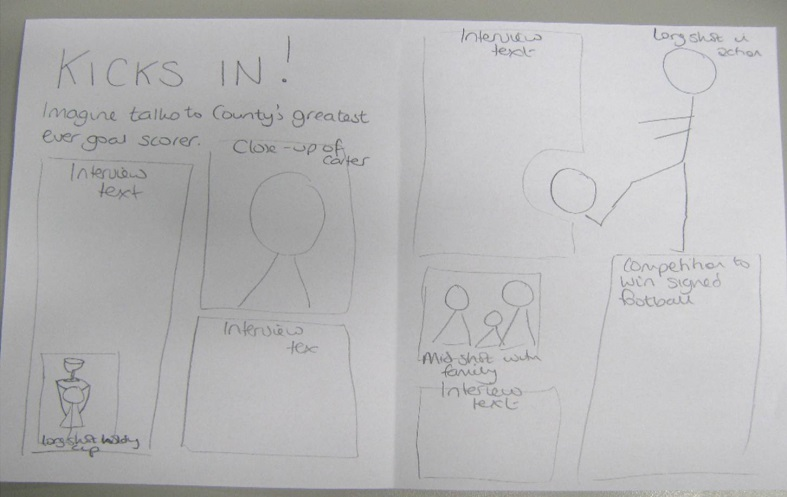 KICKS IN!
Imagine talks to County's greatest
ever goal scorer.
Interview
text
Close-up of
Carter
Interview
tex
Long shot holding
cup
Interview
text
Long shot in
action
Mid shot with
family
Interview
text
Competition to
win signed
football